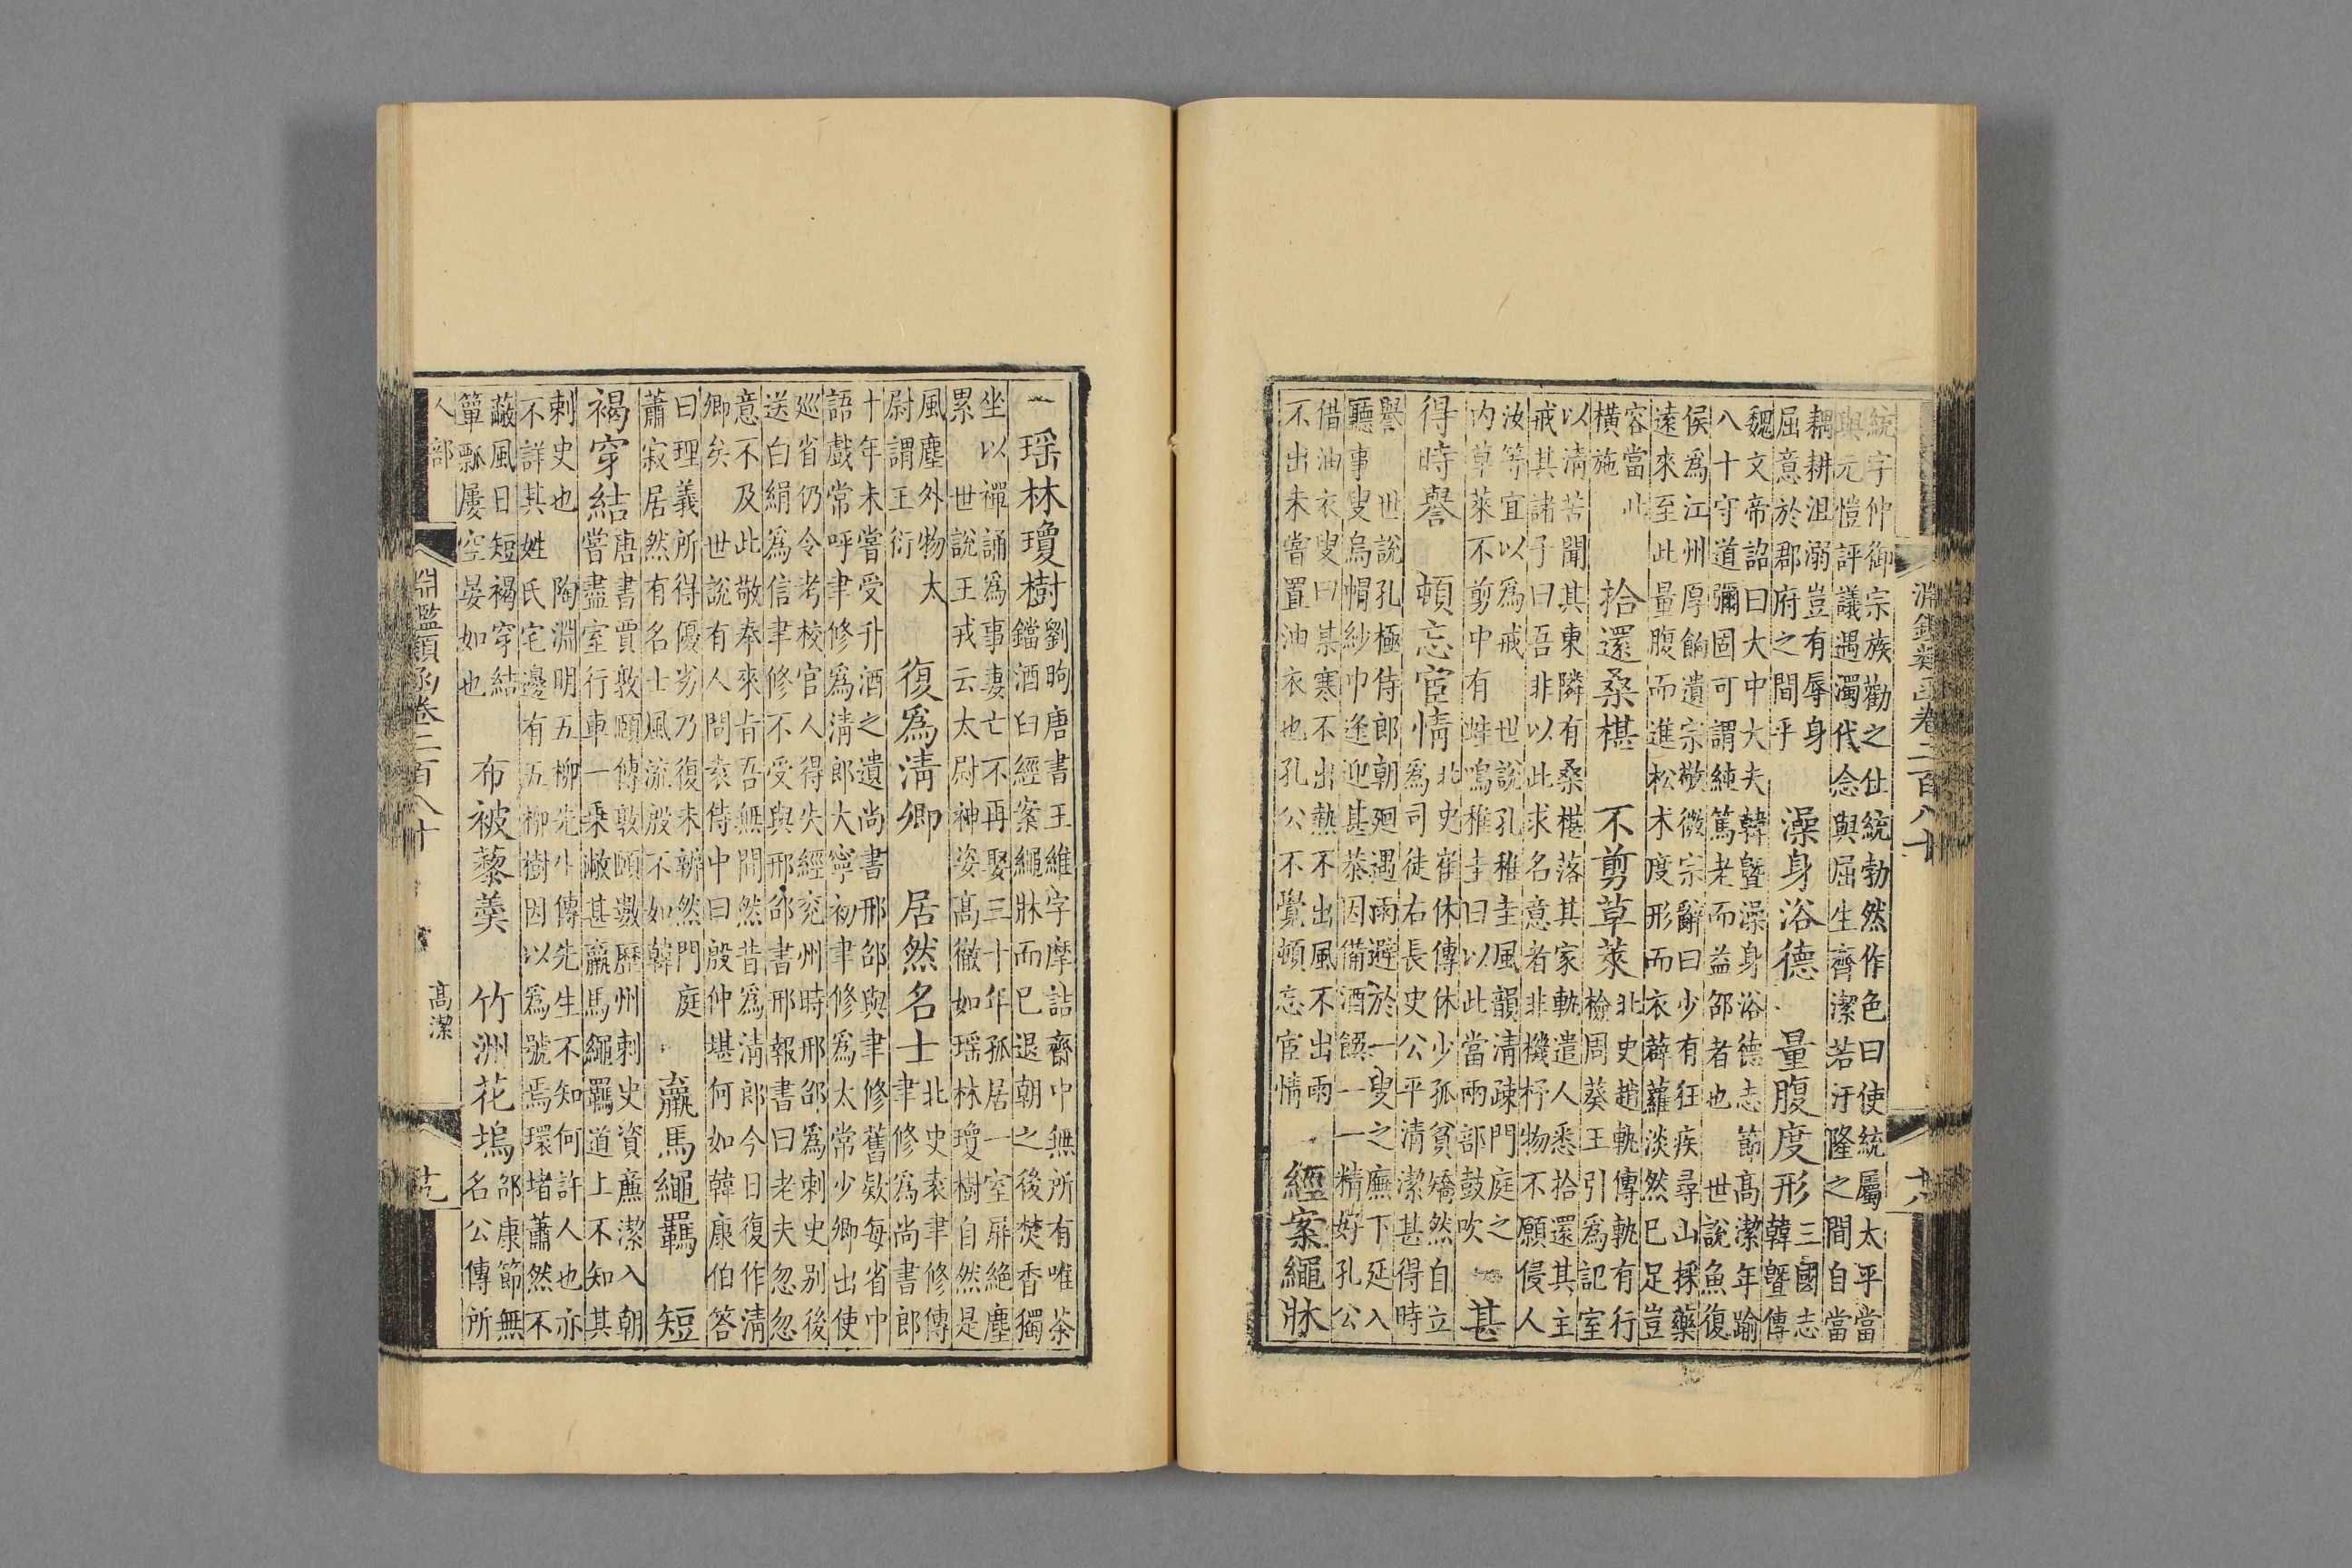 淵鑑類函卷二百八十 十八
統字仲御宗族勸之仕統勃然作色曰使統屬太平當
與元愷評議遇濁代念與屈生齊潔若汙隆之間自當
耦耕沮溺豈有辱身
屈意於郡府之間乎
澡身浴德 量腹度形
三國志
韓曁傳
魏文帝詔曰大中大夫韓曁澡身浴德志節高潔年踰
八十守道彌固可謂純篤老而益邵者也 世說魚復
侯爲江州厚餉遺宗敬微宗辭曰少有狂疾尋山採藥
遠來至此量腹而進松木度形而衣薜蘿淡然已足豈
容當此
橫施
拾還桑椹 不剪草萊
北史趙軌傳軌有行
檢周葵王引爲記室
以清苦聞其東隣有桑椹落其家軌遣人悉拾還其主
戒其諸子曰吾非以此求名意者非機杼物不願侵人
汝等宜以爲戒 世說孔稚圭風韻清疎門庭之
内草萊不剪中有蛙鳴稚圭曰以此當兩部鼓吹
甚
得時譽 頓忘宦情
北史崔休傳休少孤貧矯然自立
爲司徒右長史公平清潔甚得時
譽 世說孔極侍郎朝廻遇雨避於一叟之廡下延入
聽事叟烏帽紗巾逢迎甚恭因備酒饌一一精好孔公
借油衣叟曰某寒不出熱不出風不出雨
不出未嘗置油衣也孔公不覺頓忘宦情
經案繩牀
一 瑶林瓊樹
劉昫唐書王維字摩詰齋中無所有唯茶
鐺酒臼經案繩牀而已退朝之後焚香獨
坐以禪誦爲事妻亡不再娶三十年孤居一室屏絶塵
累 世說王戎云太尉神姿高徹如瑶林瓊樹自然是
風塵外物太
尉謂王衍
復爲清卿 居然名士
北史袁聿修傳
聿修爲尚書郎
十年未嘗受升酒之遺尚書邢邵與聿修舊欵每省中
語戲常呼聿修爲清郎大寧初聿修爲太常少卿出使
巡省仍令考校官人得失經兖州時邢邵爲刺史别後
送白絹爲信聿修不受與邢邵書邢報書曰老夫忽忽
意不及此敬奉來㫖吾無間然昔爲清郎今日復作清
卿矣 世說有人問袁侍中曰殷仲堪何如韓康伯答
曰理義所得優劣乃復未辨然門庭
蕭寂居然有名士風流殷不如韓
羸馬繩羈 短
褐穿結
唐書賈敦頤傳敦頤數歷州刺史資廉潔入朝
嘗盡室行車一乗敝甚羸馬繩羈道上不知其
刺史也 陶淵明五柳先生傳先生不知何許人也亦
不詳其姓氏宅邊有五柳樹因以爲號焉環堵蕭然不
蔽風日短褐穿結
簞瓢屢空晏如也
布被藜羮 竹洲花塢
邵康節無
名公傳所
人部 淵鑑類函卷二百八十 高潔